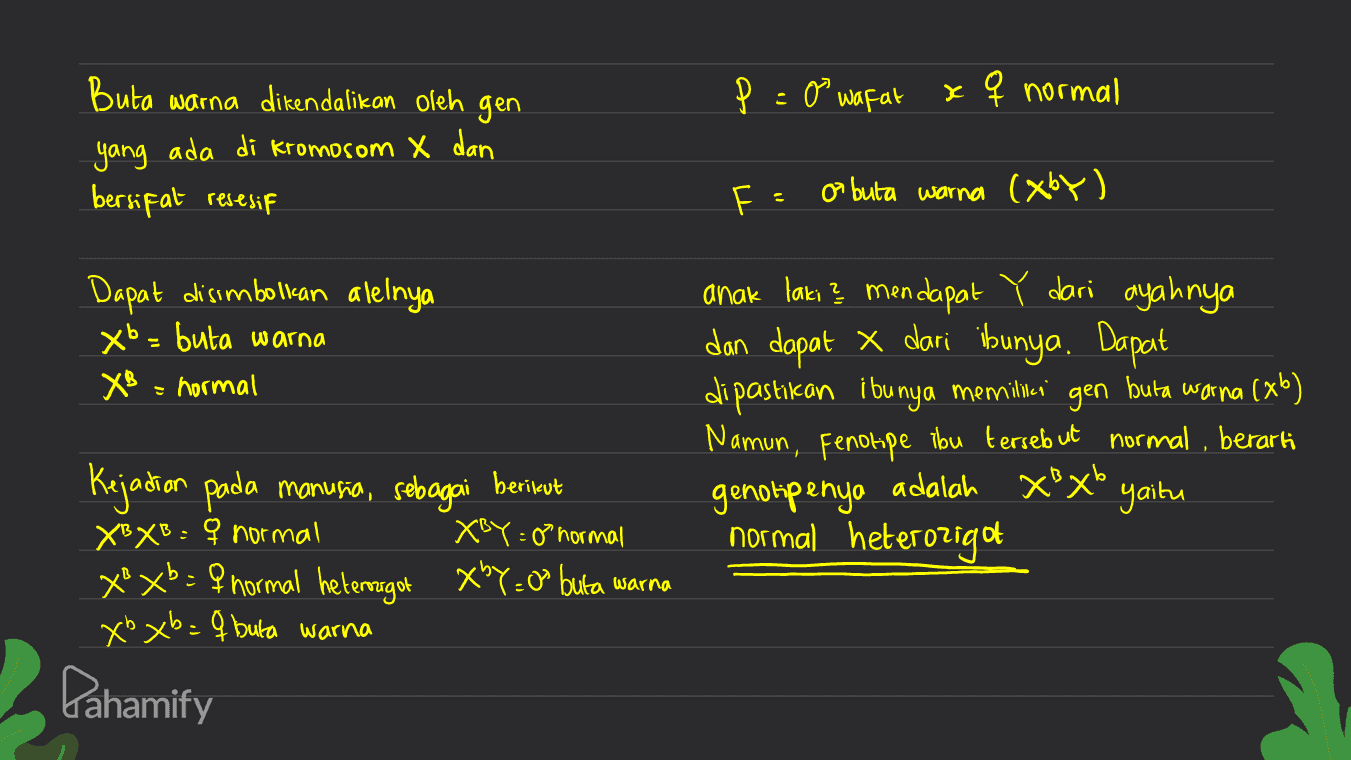 Buta warna dikendalikan oleh gen
yang ada di kromosom X dan
bersifat resesif
Dapat disimbolkan alelnya
Xᵇ = buta warna
Xᴮ = normal
Kejadian pada manusia, sebagai berikut
XᴮXᴮ = ♀ normal
XᴮXᵇ = ♀ normal heterozigot
XᵇXᵇ = ♀ buta warna
XᴮY = ♂ normal
XᵇY = ♂ buta warna
P = ♂ wafat x ♀ normal
F = ♂ buta warna (XᵇY)
anak laki2 mendapat Y dari ayahnya
dan dapat X dari ibunya. Dapat
dipastikan ibunya memiliki gen buta warna (Xᵇ)
Namun, fenotipe ibu tersebut normal, berarti
genotipenya adalah XᴮXᵇ yaitu
normal heterozigot
Pahamify